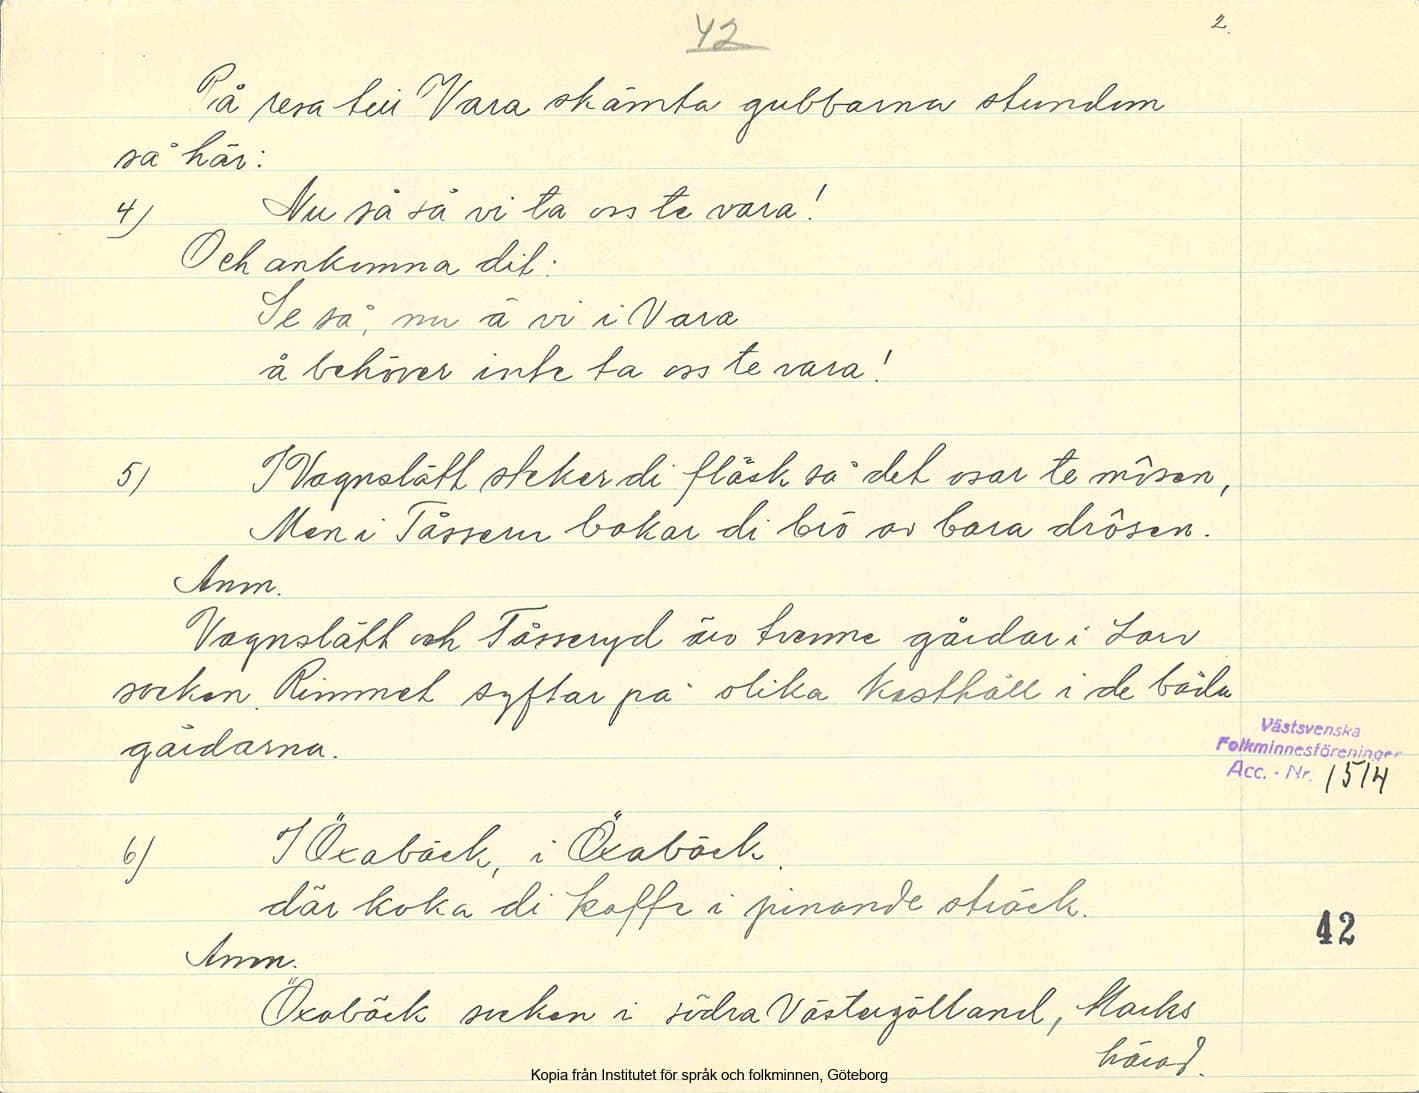 42
2.
På resa till Vara skämta gubbarna stundom
så här:
4) Nu så så vi ta oss te vara!
Och ankomna dit:
Se så, nu ä vi i Vara
å behöver inte ta oss te vara!
5) I Vagnslätt steker di fläsk så det osar te môsen,
Men i Tåsserur bakar di brö av bara drôsen.
Anm.
Vagnslätt och Tåsseryd äro tvenne gårdar i Larv
socken. Rimmet syftar på olika kosthåll i de båda
gårdarna.
Västsvenska
Folkminnesföreningen
Acc. - Nr. 1514
6) I Öxabäck, i Öxabäck
där koka di kaffe i pinande sträck.
42
Anm.
Öxabäck socken i södra Västergötland, Marks
härad.
Kopia från Institutet för språk och folkminnen, Göteborg